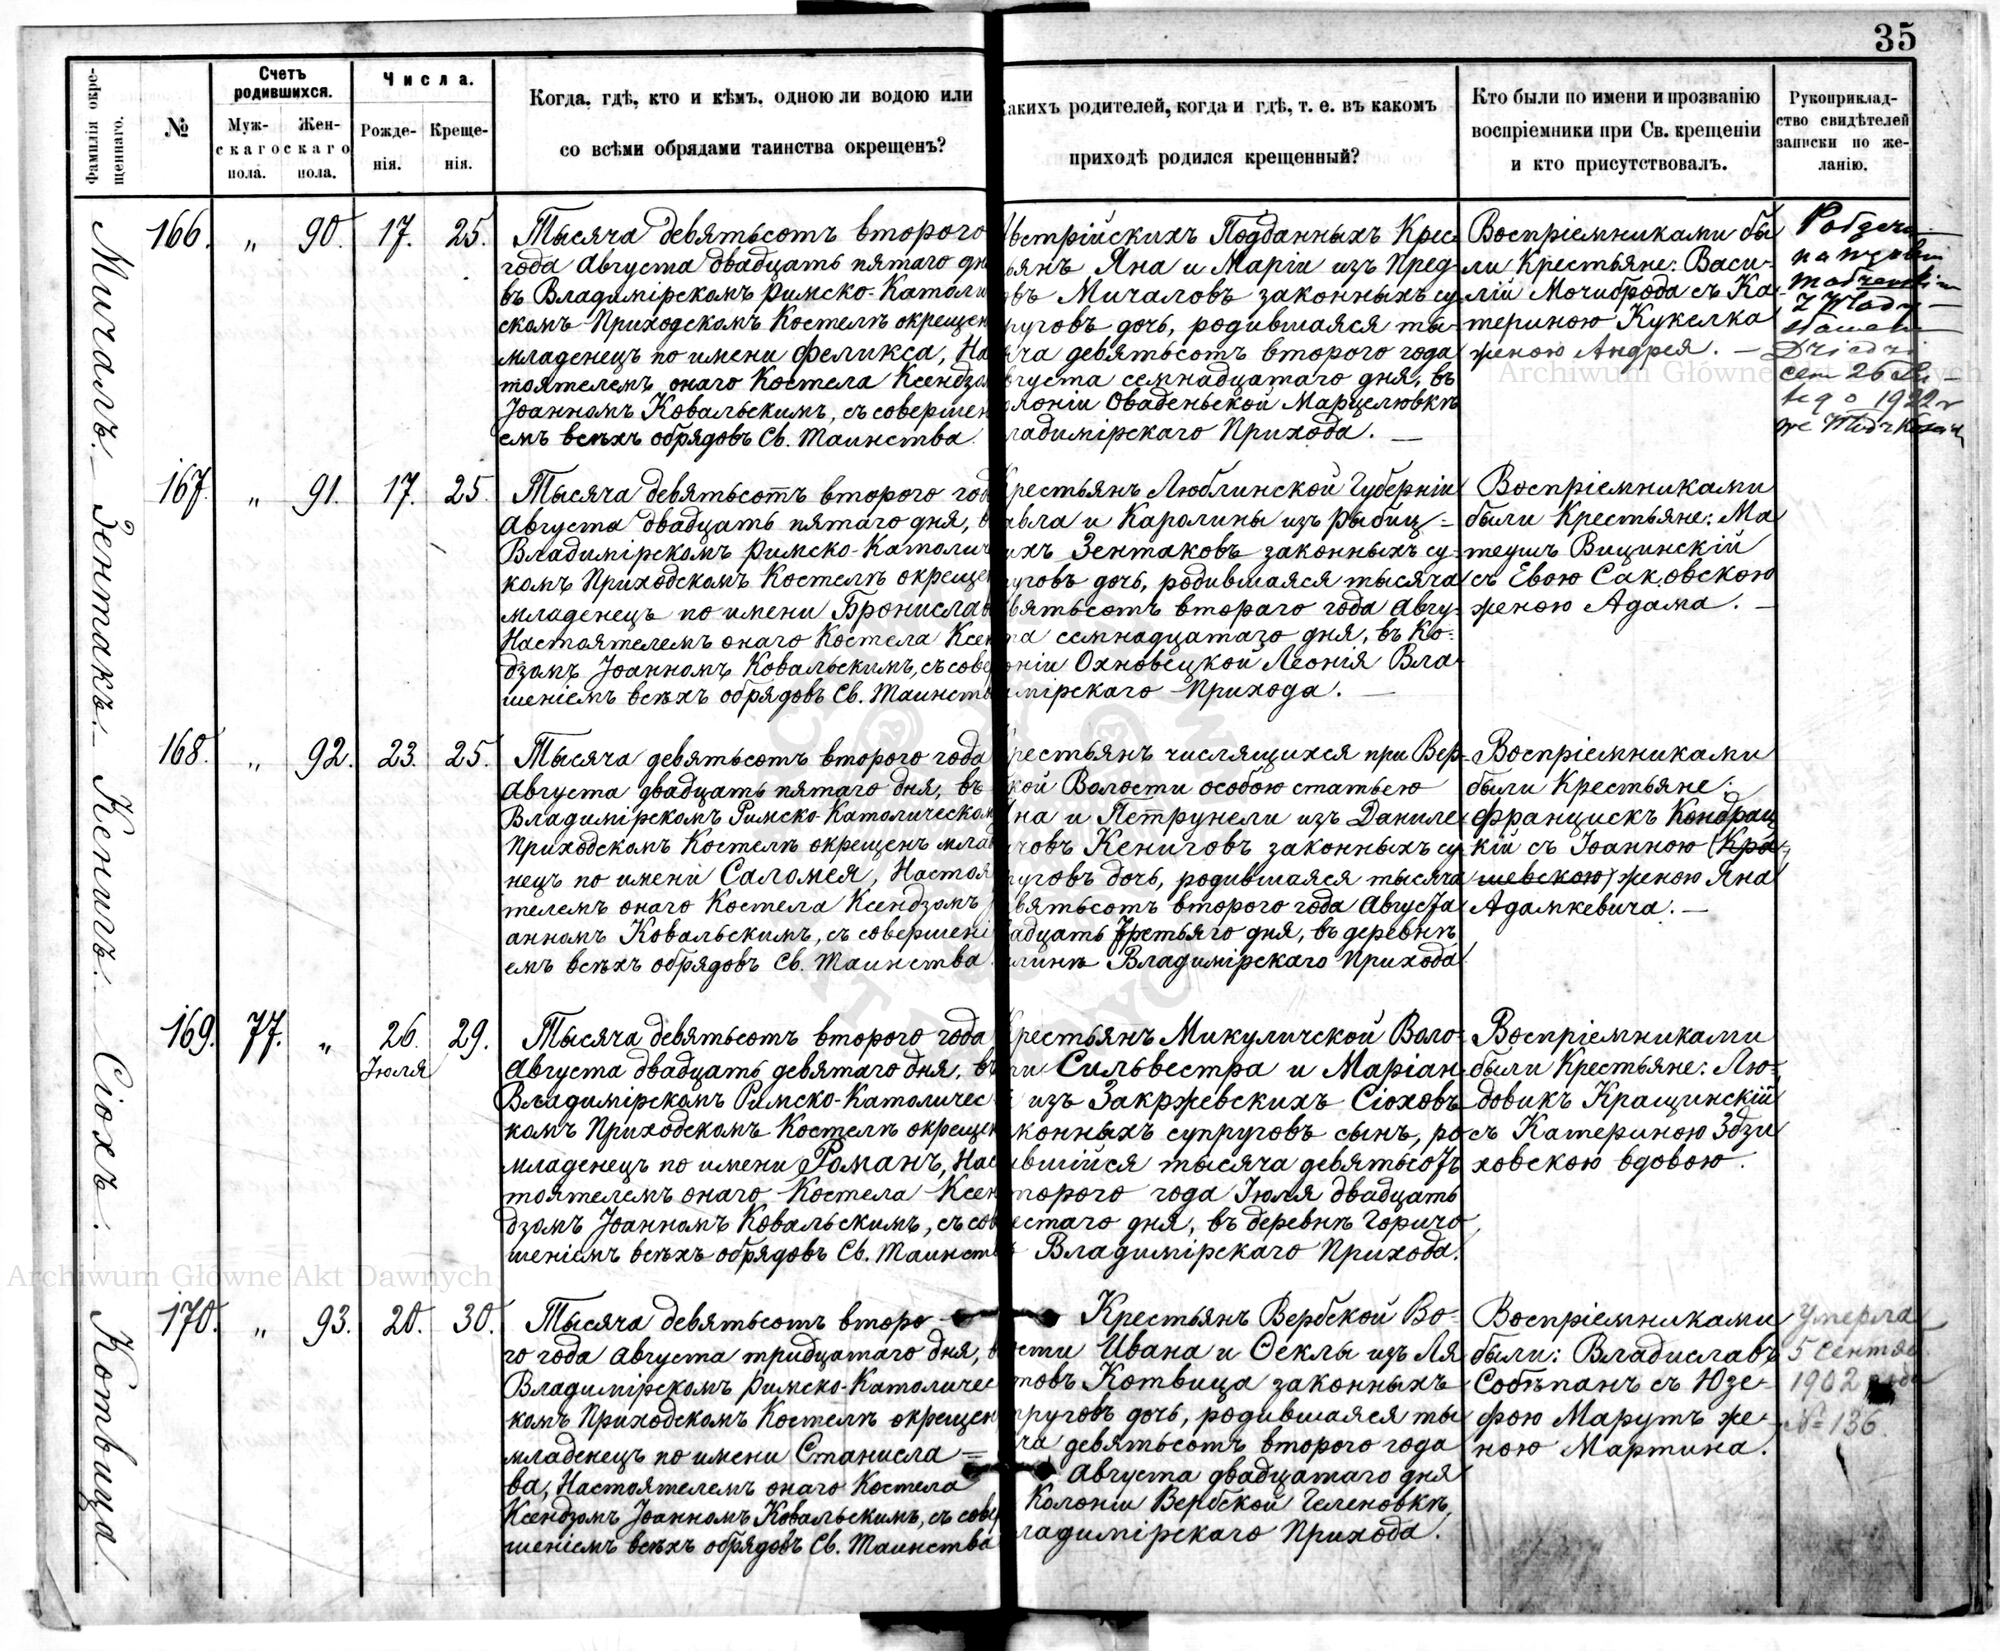 35
Фамилія окре-
щеннаго.
№
Счетъ
родившихся.
Муж-
скаго
пола.
Жен-
скаго
пола.
Числа.
Рожде-
нія.
Креще-
нія.
Когда, гдѣ, кто и кѣмъ, одною ли водою или
со всѣми обрядами таинства окрещенъ?
Какихъ родителей, когда и гдѣ, т. е. въ какомъ
приходѣ родился крещенный?
Кто были по имени и прозванію
воспріемники при Св. крещеніи
и кто присутствовалъ.
Рукоприклад-
ство свидѣтелей
записки по же-
ланію.
Мичалъ.
166. „ 90. 17. 25.
Тысяча девятьсотъ второго
года Августа двадцать пятаго дн
въ Владимірскомъ Римско-Католи
скомъ Приходскомъ Костелѣ окрещен
младенецъ по имени Феликса, На
тоятелемъ онаго Костела Ксендзо
Іоанномъ Ковальскимъ, съ совершен
емъ всѣхъ обрядовъ Св. Таинства.
встрійскихъ Подданныхъ Крес
ьянъ Яна и Маріи изъ Пред
овъ Мичаловъ законныхъ су
руговъ дочь, родившаяся ты-
яча девятьсотъ второго года
вгуста семнадцатаго дня, въ
олоніи Оваденьской Марцелювкѣ
ладимірскаго Прихода. —
Воспріемниками бы
ли Крестьяне: Васи-
лій Мочиброда съ Ка-
териною Кукелка
женою Андрея. —
26
1922 r
Зентакъ.
167. „ 91. 17. 25.
Тысяча девятьсотъ второго год
Августа двадцать пятаго дня, в
Владимірскомъ Римско-Католич
комъ Приходскомъ Костелѣ окреще
младенецъ по имени Бронислав
Настоятелемъ онаго Костела Ксен
дзомъ Іоанномъ Ковальскимъ, съ сове
шеніемъ всѣхъ обрядовъ Св. Таинств
Крестьянъ Люблинской Губерніи
авла и Каролины изъ Рыбиц=
ихъ Зентаковъ законныхъ су-
руговъ дочь, родившаяся тысяча
вятьсотъ втораго года Авгу-
та семнадцатаго дня, въ Ко-
оніи Охновецкой Леонія Вла-
имірскаго Прихода. —
Воспріемниками
были Крестьяне: Ма
теушъ Вицинскій
съ Евою Саковскою
женою Адама. —
Кенигъ.
168. „ 92. 23. 25.
Тысяча девятьсотъ второго года
Августа двадцать пятаго дня, въ
Владимірскомъ Римско-Католическом
Приходскомъ Костелѣ окрещенъ млад
нецъ по имени Саломея, Настоя
телемъ онаго Костела Ксендзомъ
анномъ Ковальскимъ, съ совершені
емъ всѣхъ обрядовъ Св. Таинства
рестьянъ числящихся при Вер-
кой Волости особою статьею
Яна и Петрунели изъ Даниле
ичовъ Кениговъ законныхъ су
руговъ дочь, родившаяся тысяча
вятьсотъ второго года Августа
адцать третьяго дня, въ деревнѣ
линѣ Владимірскаго Прихода
Воспріемниками
были Крестьяне:
Францискъ Кондрац
кій съ Іоанною (Кра-
шевскою) женою Яна
Адамкевича. —
Сіохъ.
169. 77. „ 26. Іюля 29.
Тысяча девятьсотъ второго года
Августа двадцать девятаго дня, въ
Владимірскомъ Римско-Католичес
комъ Приходскомъ Костелѣ окрещен
младенецъ по имени Романъ, Нас
тоятелемъ онаго Костела Ксен
дзомъ Іоанномъ Ковальскимъ, съ сов
шеніемъ всѣхъ обрядовъ Св. Таинст
рестьянъ Микуличской Воло-
ти Сильвестра и Маріан-
изъ Закржевскихъ Сіоховъ
конныхъ супруговъ сынъ, ро
ившійся тысяча девятьсотъ
торого года Іюля двадцать
естаго дня, въ деревнѣ Горичо
Владимірскаго Прихода.
Воспріемниками
были Крестьяне: Лю-
довикъ Кращинскій
съ Катериною Здзи
ховскою вдовою.
Котвица.
170. „ 93. 20. 30.
Тысяча девятьсотъ второ-
го года Августа тридцатаго дня, в
Владимірскомъ Римско-Католичес
комъ Приходскомъ Костелѣ окрещен
младенецъ по имени Станисла=
ва, Настоятелемъ онаго Костела
Ксендзомъ Іоанномъ Ковальскимъ, съ сове
шеніемъ всѣхъ обрядовъ Св. Таинства
Крестьянъ Вербской Во-
ости Ивана и Θеклы изъ Ля
товъ Котвица законныхъ
пруговъ дочь, родившаяся ты
яча девятьсотъ второго года
Августа двадцатаго дня
Колоніи Вербской Геленовкѣ,
ладимірскаго Прихода.
Воспріемниками
были: Владиславъ
Собѣпанъ съ Юзе-
фою Марутъ же-
ною Мартина.
Умерла
5 Сентяб
1902 года
№ 136.
Archiwum Główne Akt Dawnych
Archiwum Główne Akt Dawnych